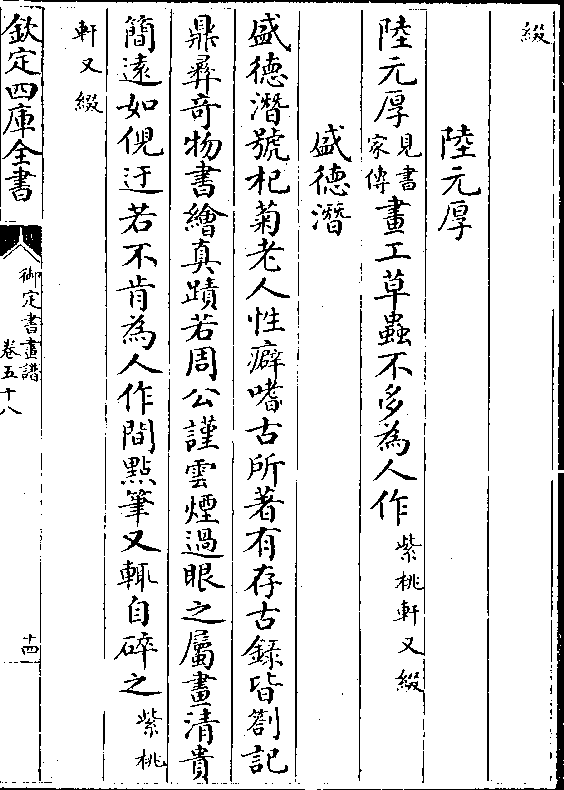 綴
陸元厚
陸元厚見書家傳畫工草蟲不多為人作紫桃軒又綴
盛德潛
盛德潛號杞菊老人性癖嗜古所著有存古錄皆劄記
鼎彛奇物書繪真蹟若周公謹雲煙過眼之屬畫清貴
簡遠如倪迂若不肯為人作間㸃筆又輒自碎之紫桃
軒又綴
欽定四庫全書
御定書畫譜
卷五十八
十四